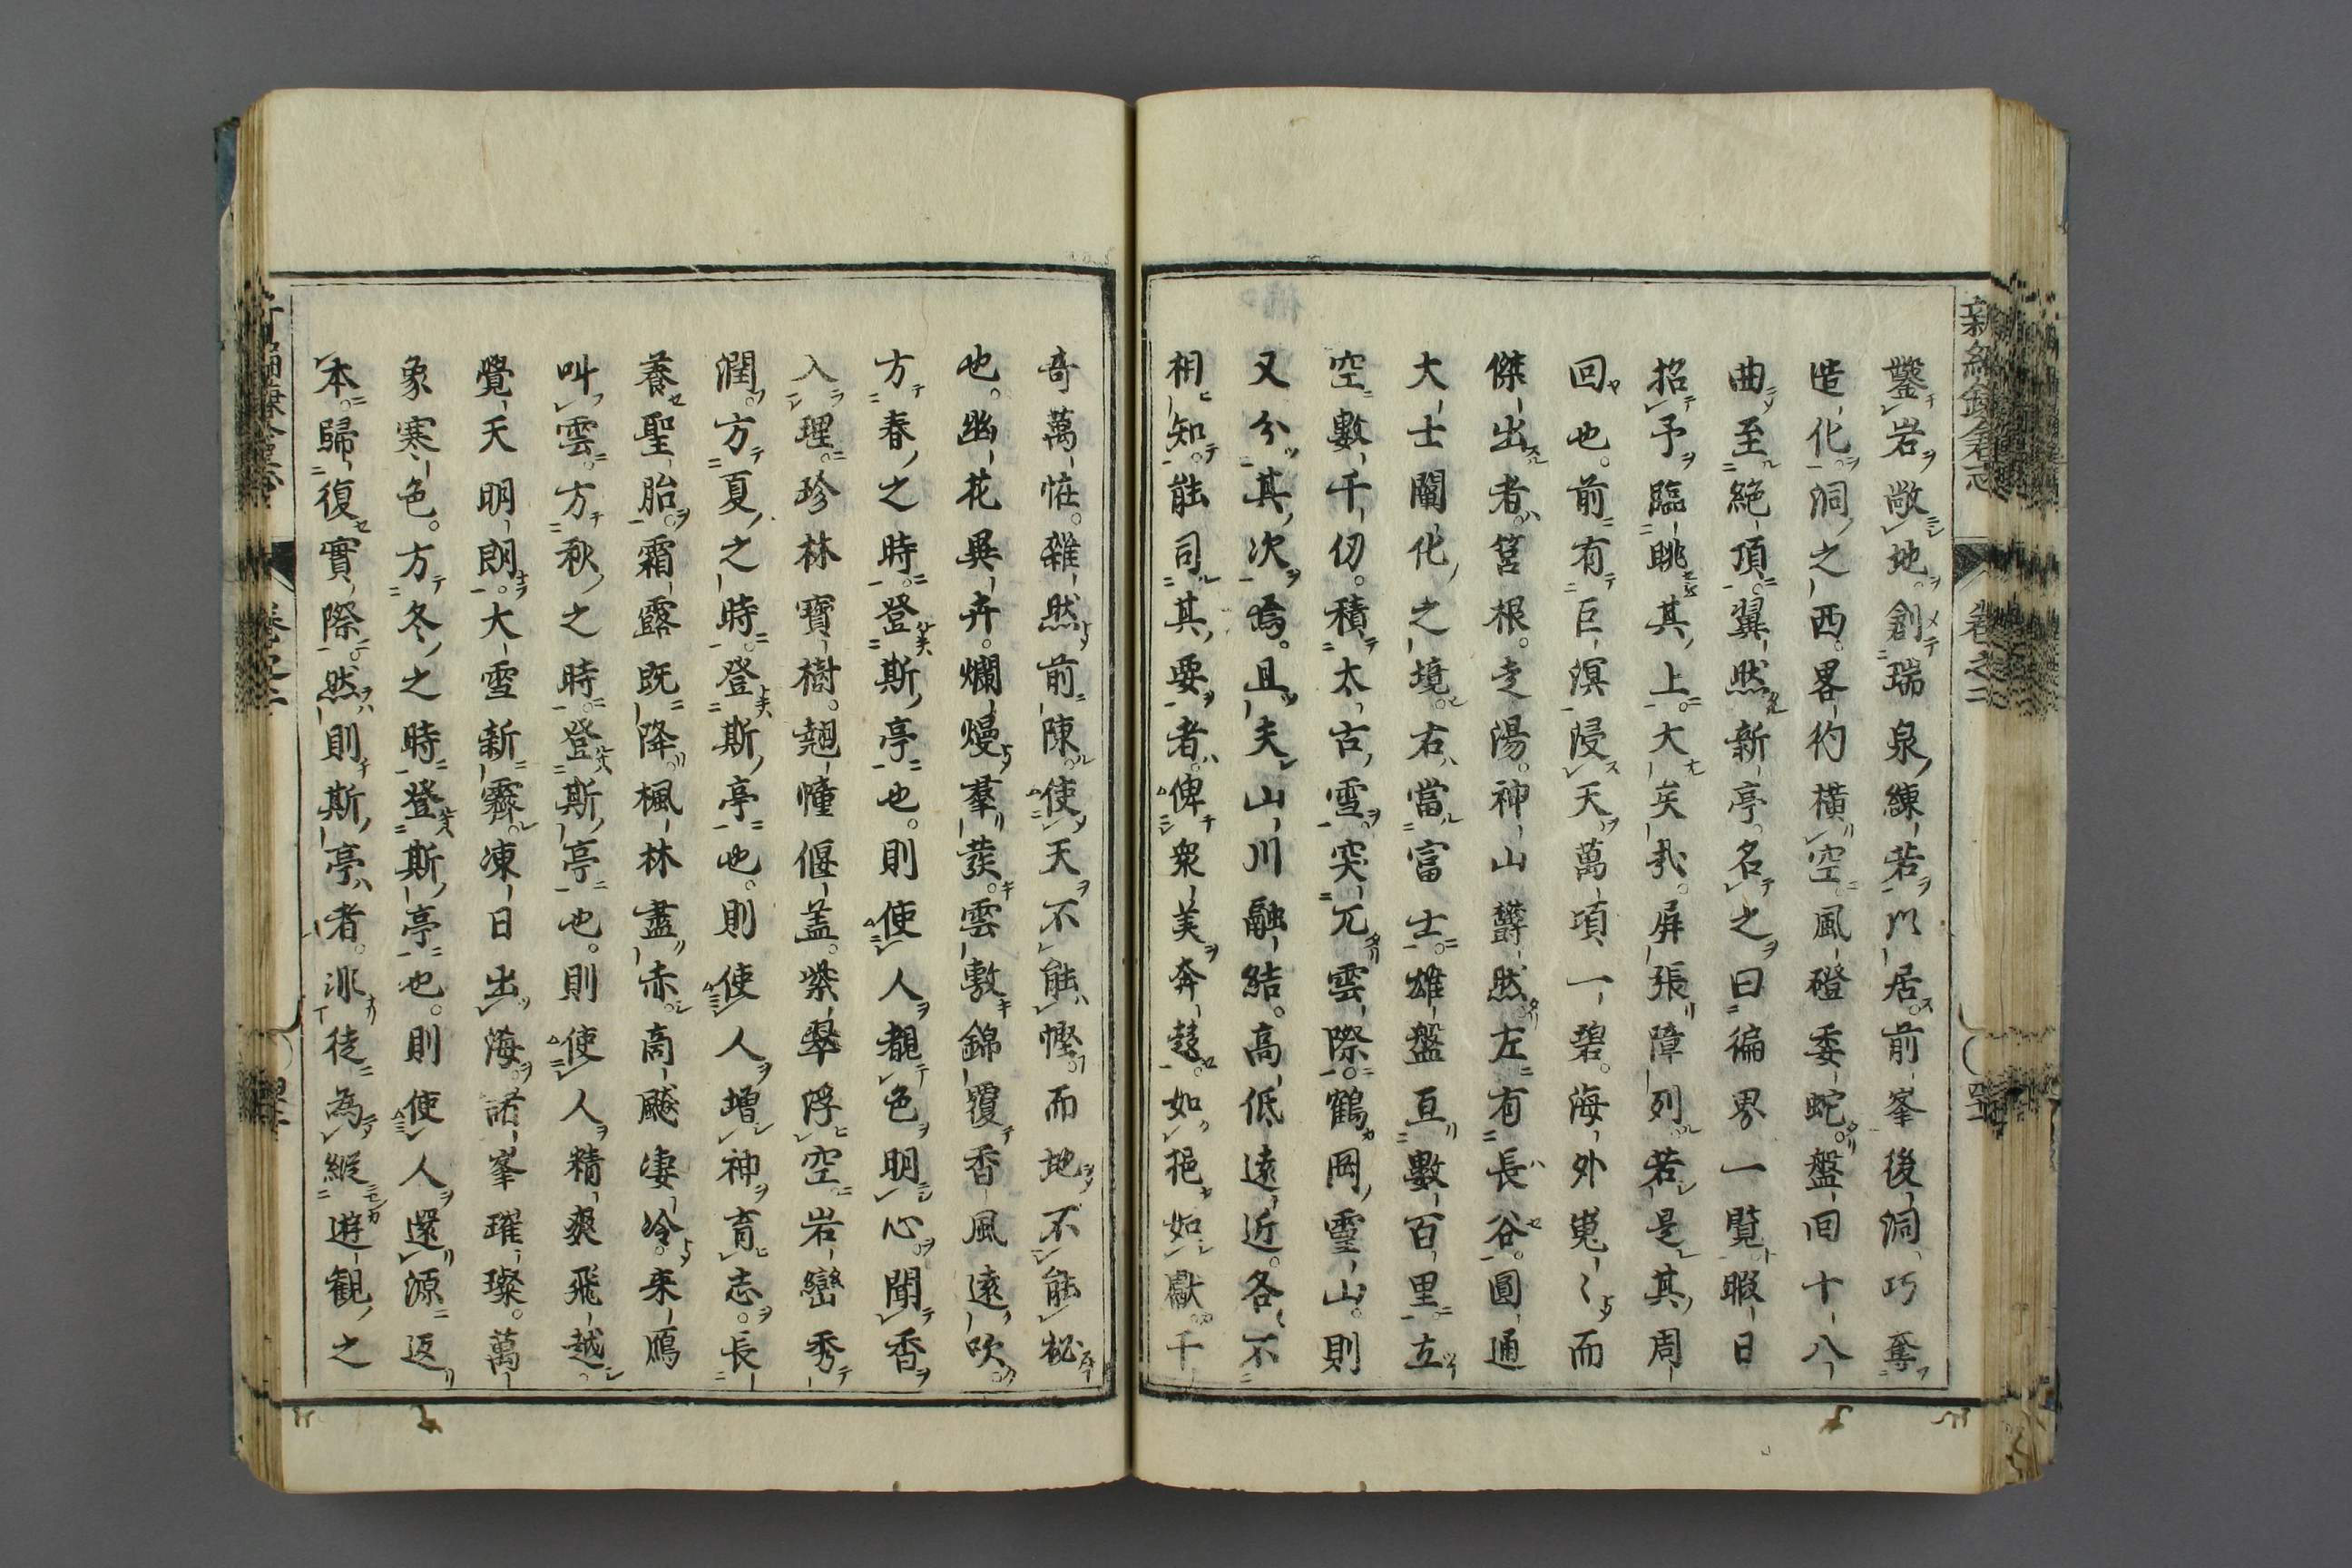 新編鎌倉志 卷之二
鑿岩敞地。創瑞泉、練若以居。前峯後洞、巧奪
造化。洞之西。畧彴橫空。風磴委蛇。盤回十八
曲至絶頂。翼然新亭。名之曰徧界一覽。暇日
招予臨眺其上。大矣哉。屏張障列。若是其周
回也。前有巨溟浸天。萬頃一碧。海外嵬〻而
傑出者。筥根。走湯。神山欝然。左有長谷。圓通
大士闡化之境。右當富士。雄盤亘數百里。立
空數千仭。積太古雪。突兀雲際。鶴岡靈山。則
又分其次焉。且夫山川融結。高低遠近。各不
相知。能司其要者。俾衆美奔趨。如挹如獻。千
奇萬恠。雜然前陳。使天不能慳。而地不能祕
也。幽花異卉。爛熳羣發。雲敷錦覆。香風遠吹。
方春之時。登斯亭也。則使人覩色明心。聞香
入理。珍林寶樹。翹幢偃盖。紫翠浮空。岩巒秀
潤。方夏之時。登斯亭也。則使人增神育志。長
養聖胎。霜露既降。楓林盡赤。商飈凄冷。来鴈
叫雲。方秋之時。登斯亭也。則使人精爽飛越。
覺天明朗。大雪新霽。凍日出海。諸峯璀璨。萬
象寒色。方冬之時。登斯亭也。則使人還源返
本。歸復實際。然則斯亭者。非徒為縱遊觀之
卷之二